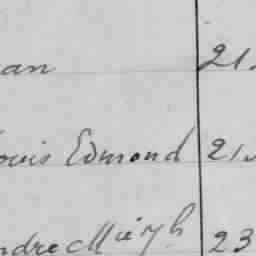 an 21.
ouis Edmond 21
ndre 23